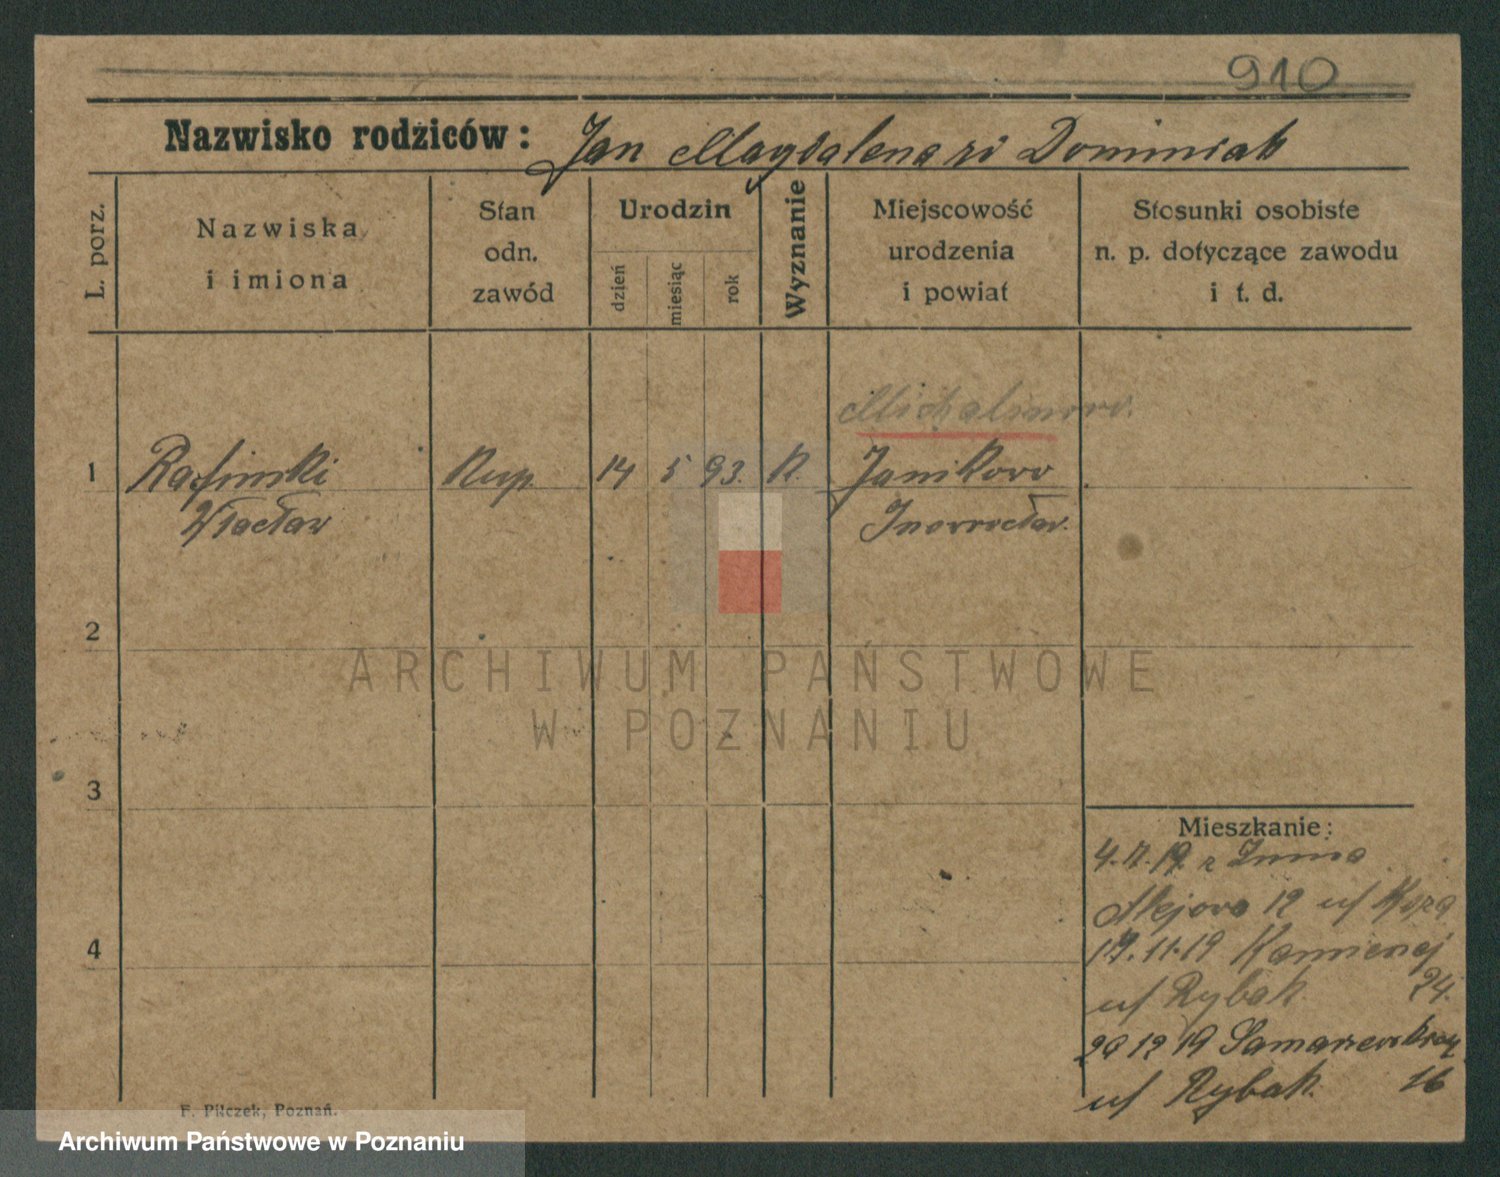 910
Nazwisko rodziców: Jan Magdalena zd Dominiak
L. porz.
Nazwiska i imiona
Stan odn. zawód
Urodzin
dzień
miesiąc
rok
Wyznanie
Miejscowość urodzenia i powiat
Stosunki osobiste n. p. dotyczące zawodu i t. d.
1
Kup.
14
5
93.
K.
Janikowo
Wacław
Inowrocław.
2
ARCHIWUM PAŃSTWOWE
W POZNANIU
3
Mieszkanie:
12
17.11.19 Kamienej
Rybak 24.
29 12 19
Rybak. 16
4
F. Pilczek, Poznań.
Archiwum Państwowe w Poznaniu